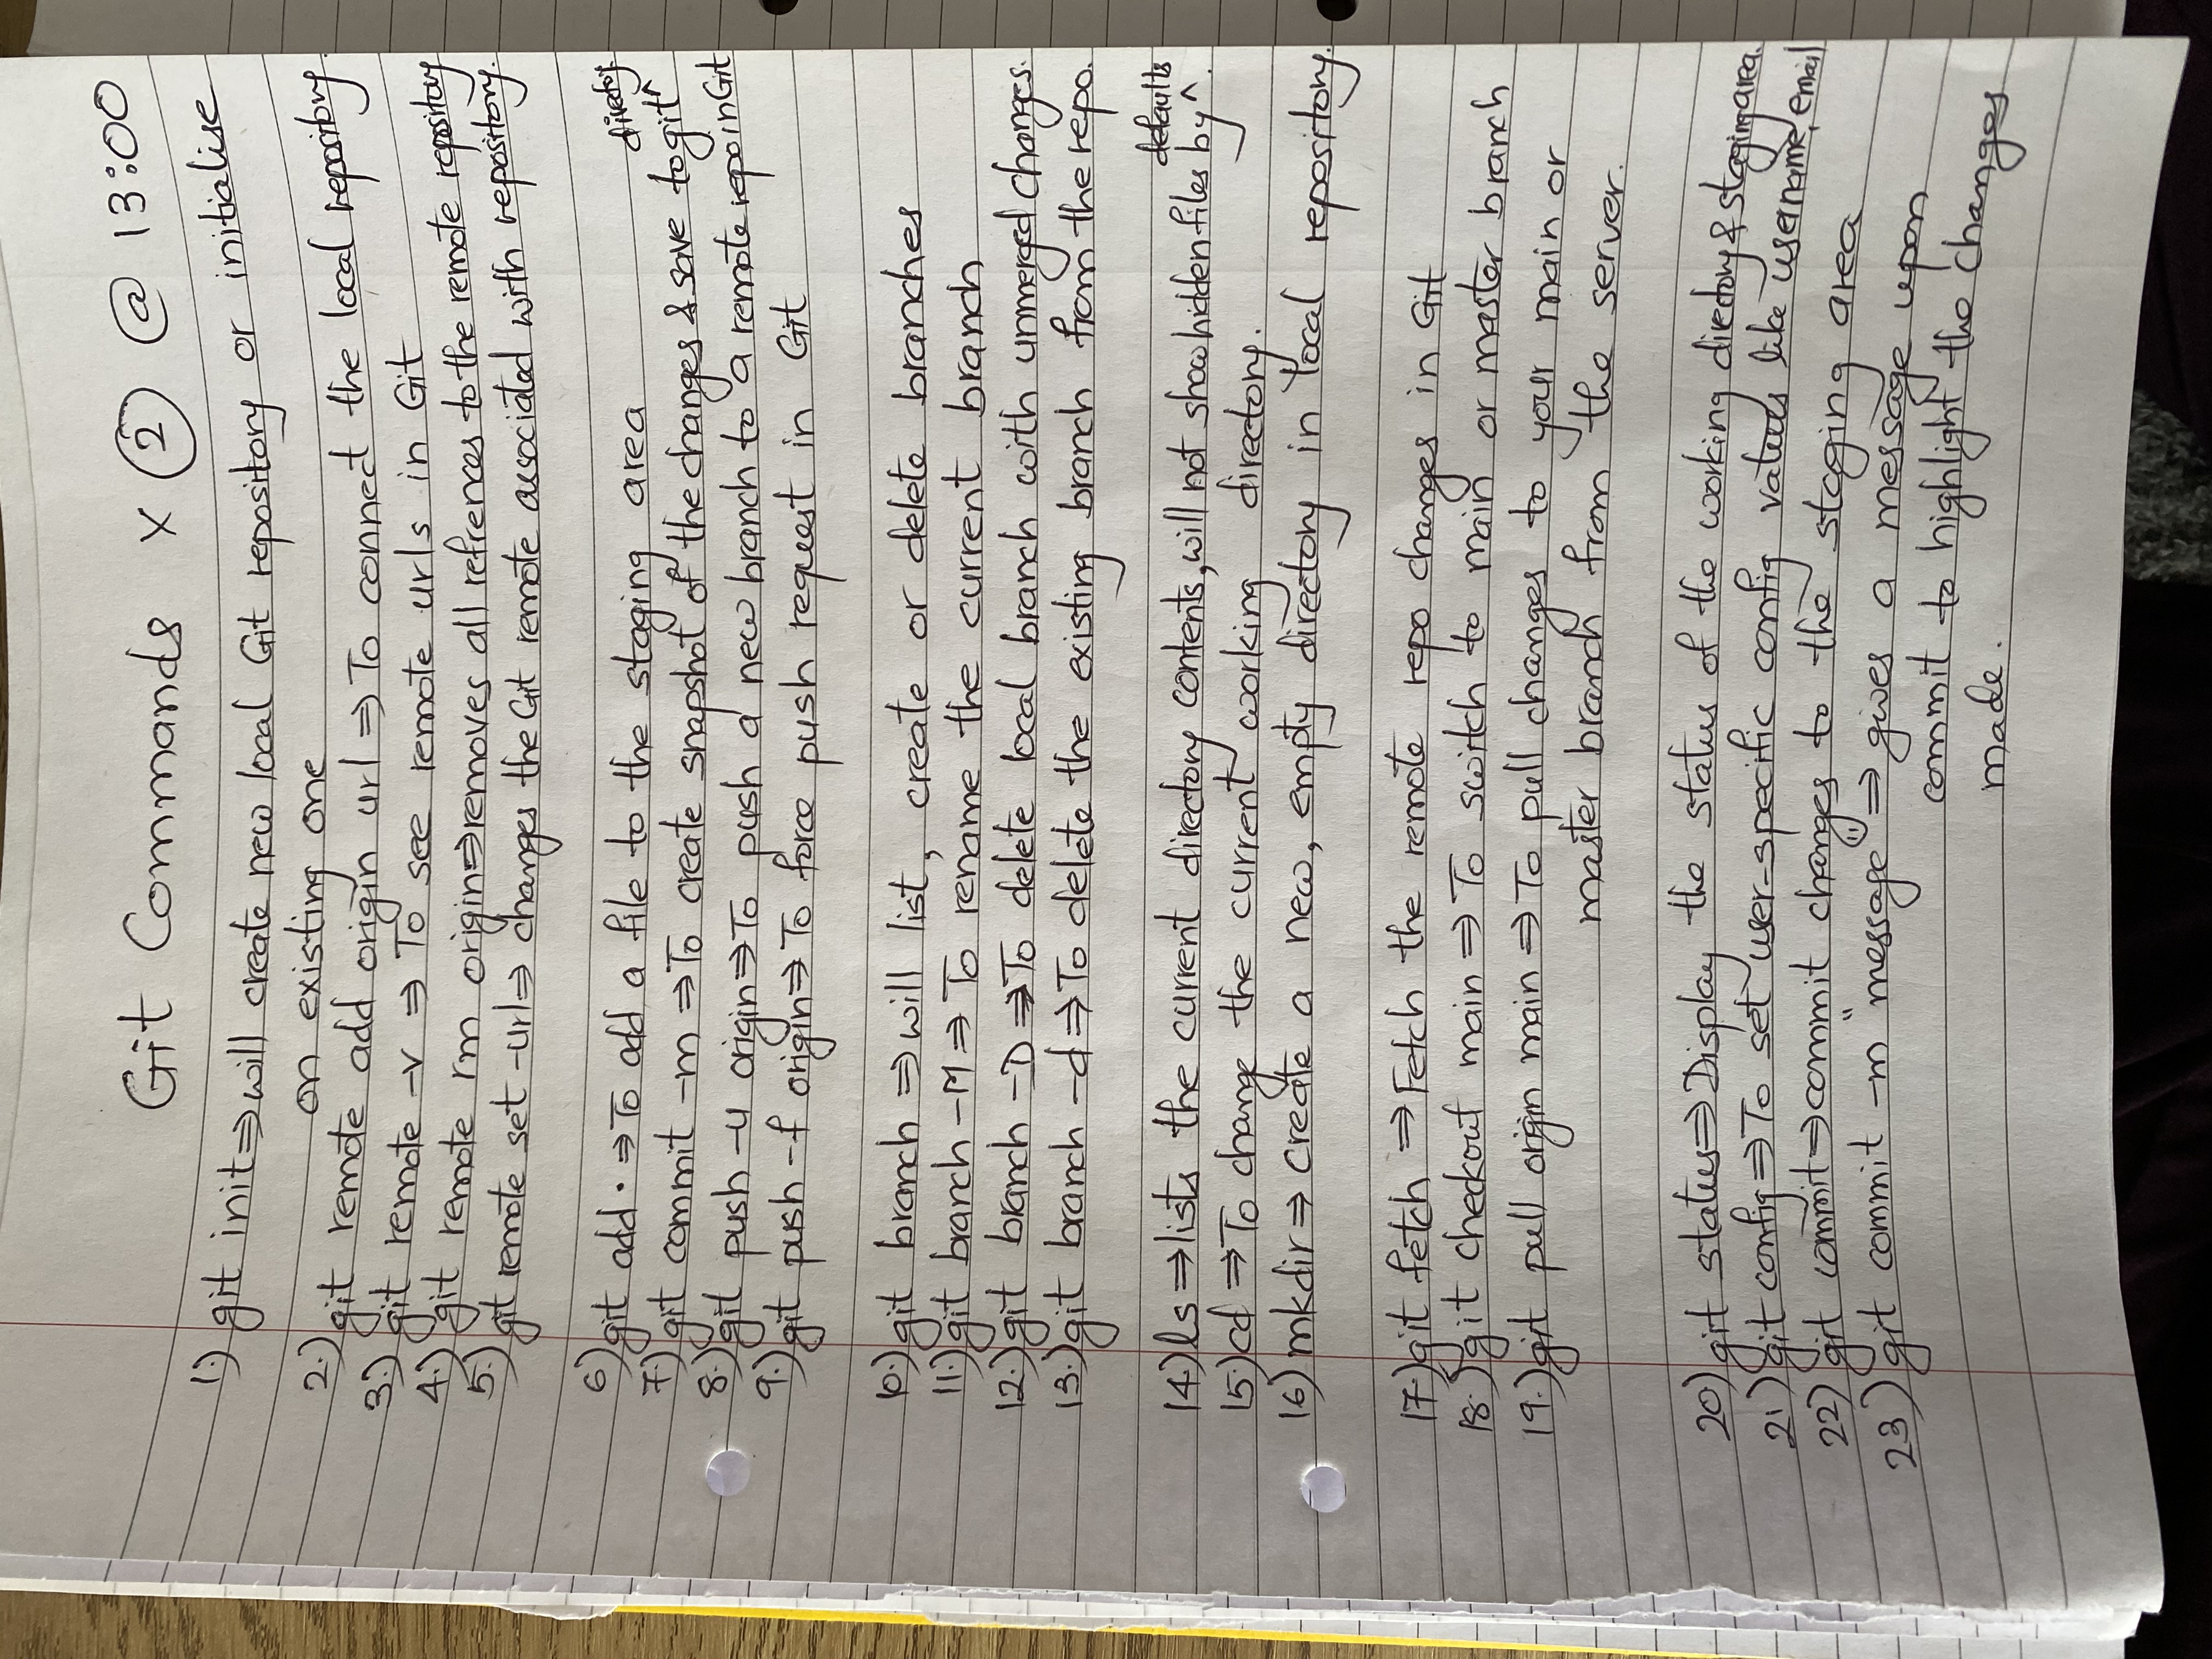 Git Commands x 2 @ 13:00
1.) git init ⇒ will create new local Git repository or initialise
on existing one
2.) git remote add origin url ⇒ To connect the local repository.
3.) git remote -v ⇒ To see remote urls in Git
4.) git remote rm origin ⇒ removes all refrences to the remote repository
5.) git remote set -url ⇒ changes the Git remote associated with repository.
6.) git add . ⇒ To add a file to the staging area
directory.
7.) git commit -m ⇒ To create snapshot of the changes & save to git ^
8.) git push -u origin ⇒ To push a new branch to a remote repo in Git
9.) git push -f origin ⇒ To force push request in Git
10.) git branch ⇒ will list, create or delete branches
11.) git branch -M ⇒ To rename the current branch
12.) git branch -D ⇒ To delete local branch with unmerged changes.
13.) git branch -d ⇒ To delete the existing branch from the repo.
defaults
14.) ls ⇒ lists the current directory contents, will not show hidden files by ^.
15.) cd ⇒ To change the current working directory.
16) mkdir ⇒ create a new, empty directory in local repository.
17.) git fetch ⇒ Fetch the remote repo changes in Git
18.) git checkout main ⇒ To switch to main or master branch
19.) git pull origin main ⇒ To pull changes to your main or
master branch from the server.
20) git status ⇒ Display the status of the working directory & staging area.
21) git config ⇒ To set user-specific config values like username, email
22) git commit ⇒ commit changes to the staging area
23) git commit -m "message" ⇒ gives a message upon
commit to highlight the changes
made.